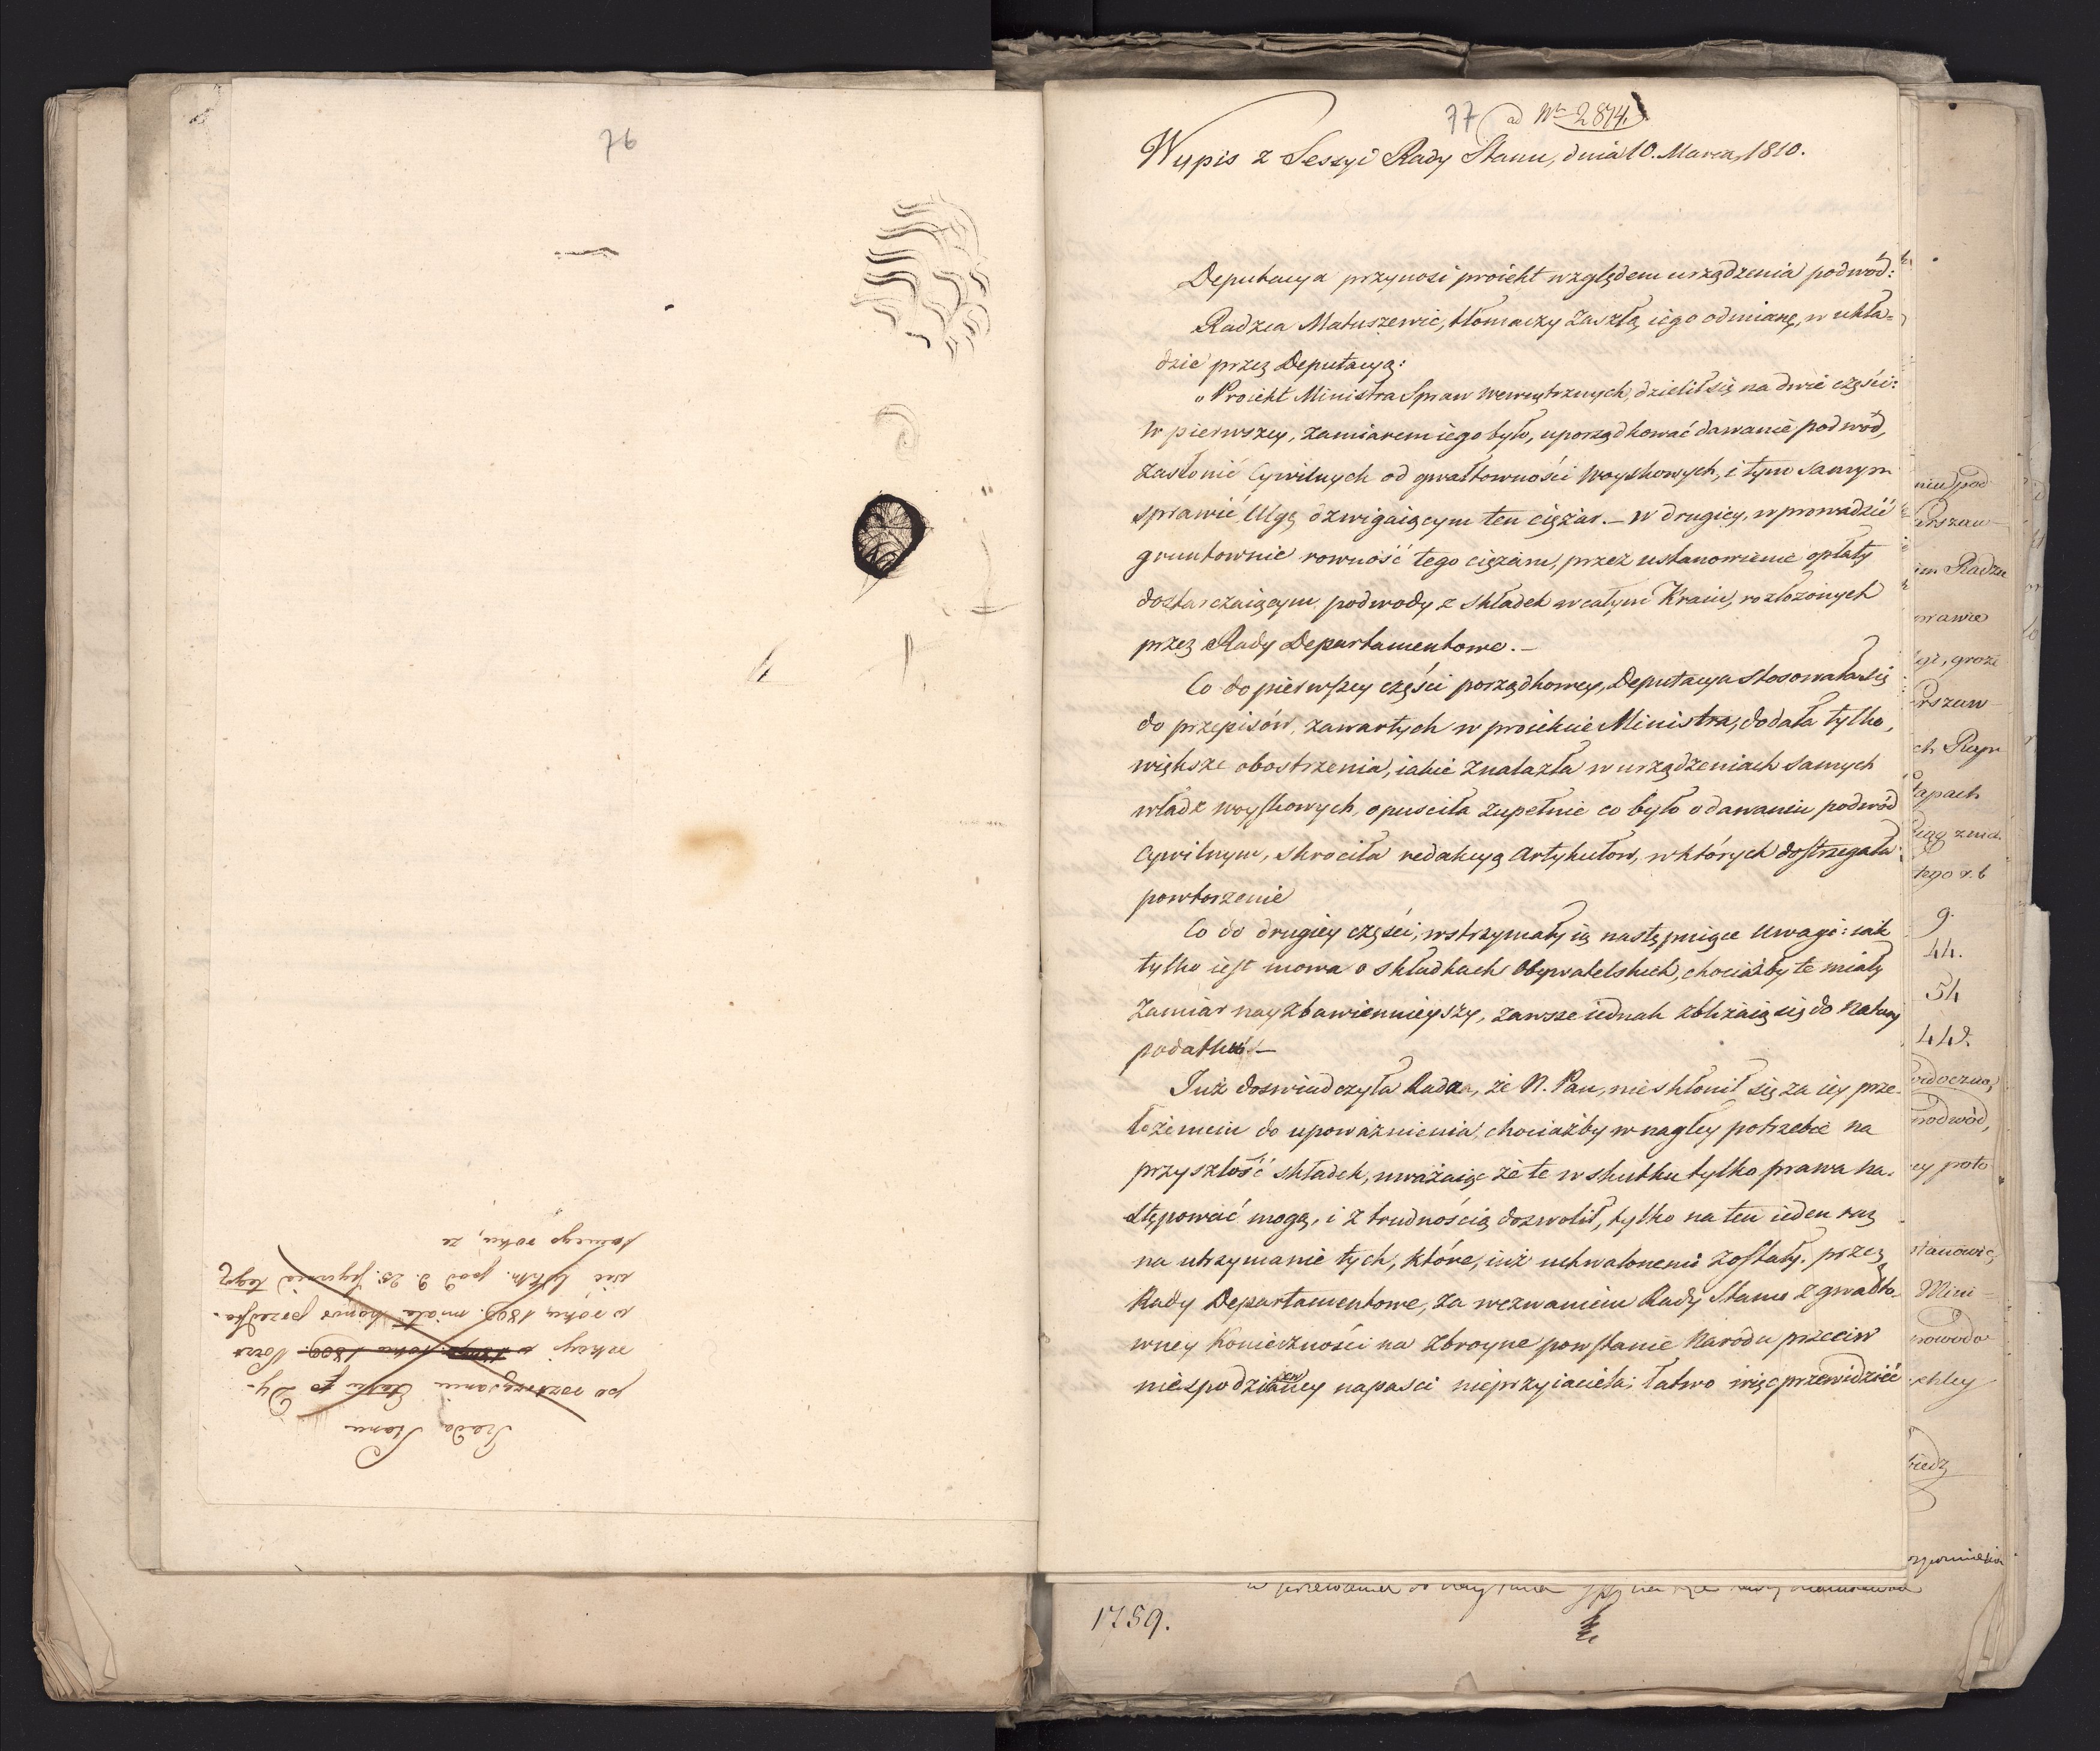 76
Rada Stanu
w roku 1809. miała honor przesła-
77 ad Nr 2874.
Wypis z Sessyi Rady Stanu, dnia 10. Marca, 1810.
Deputacya przynosi proiekt względem urządzenia podwód:
Radzca Matuszewic, tłomaczy zaszłą iego odmianę, w ukła=
dzie przez Deputacyą:
„Proiekt Ministra Spraw Wewnętrznych, dzielił się na dwie części:
W pierwszey, zamiarem iego było, uporządkować dawanie podwód,
zasłonić Cywilnych od gwałtowności Woyskowych, i tym samym
sprawić Ulgę dzwigaiącym ten ciężar. — W drugiey, wprowadzić
gruntownie rowność tego ciężaru, przez ustanowienie opłaty
dostarczaiącym podwody z składek w całym Kraiu, rozłożonych
przez Rady Departamentowe. —
Co do pierwszey części porządkowey, Deputacya stosowała się
do przepisów, zawartych w proiekcie Ministra, dodała tylko,
większe obostrzenia, iakie znalazła w urządzeniach samych
władz woyskowych, opuściła zupełnie co było o dawaniu podwód
Cywilnym, skrociła redakcyą Artykułow, w których dostrzegała
powtorzenie
Co do drugiey części, wstrzymały ią następuiące Uwagi: iak
tylko iest mowa o składkach Obywatelskich, chociażby te miały
zamiar nayzbawiennieyszy, zawsze iednak zbliżaią się do Natury
podatku. —
Już doswiadczyła Rada, że N. Pan, nieskłonił się za iey prze-
łożeniem do upoważnienia, chociażby w nagłey potrzebie na
przyszłość składek, uważaiąc że te w skutku tylko prawa na-
stępować mogą, i z trudnością dozwolił, tylko na ten ieden raz
na utrzymanie tych, które, iuż uchwalonemi zostały, przez
Rady Departamentowe, za wezwaniem Rady Stanu z gwałto-
wney Konieczności na zbroyne powstanie Narodu przeciw
niespodzianey napaści nieprzyiaciela; łatwo więc przewidzieć
1759.